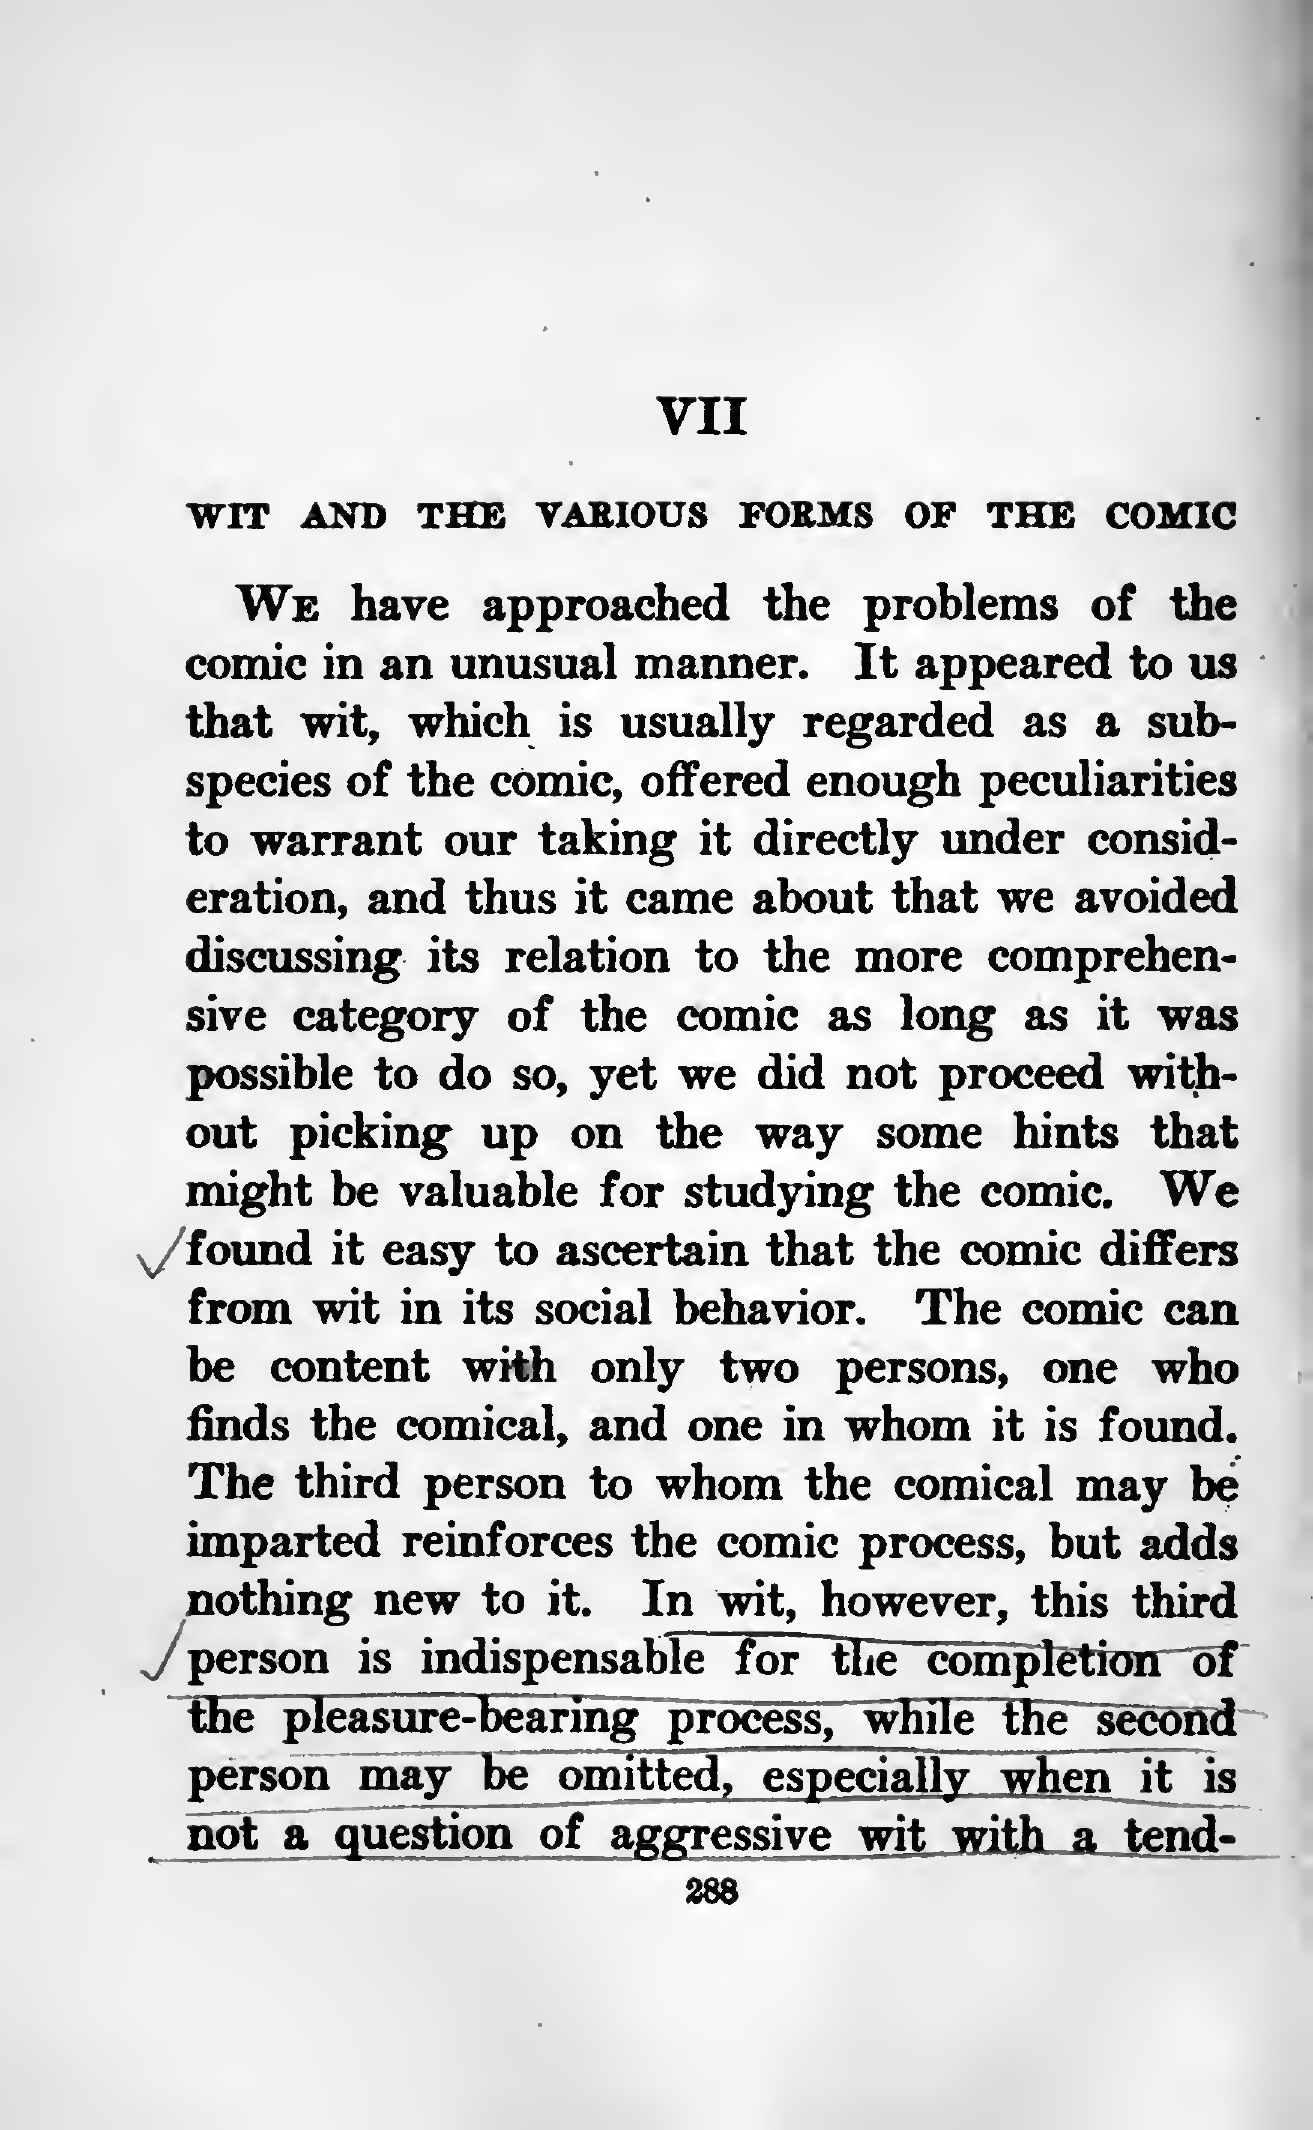 VII
WIT AND THE VARIOUS FORMS OF THE COMIC
WE have approached the problems of the
comic in an unusual manner. It appeared to us
that wit, which is usually regarded as a sub-
species of the comic, offered enough peculiarities
to warrant our taking it directly under consid-
eration, and thus it came about that we avoided
discussing its relation to the more comprehen-
sive category of the comic as long as it was
possible to do so, yet we did not proceed with-
out picking up on the way some hints that
might be valuable for studying the comic. We
found it easy to ascertain that the comic differs
from wit in its social behavior. The comic can
be content with only two persons, one who
finds the comical, and one in whom it is found.
The third person to whom the comical may be
imparted reinforces the comic process, but adds
nothing new to it. In wit, however, this third
person is indispensable for the completion of
the pleasure-bearing process, while the second
person may be omitted, especially when it is
not a question of aggressive wit with a tend-
288